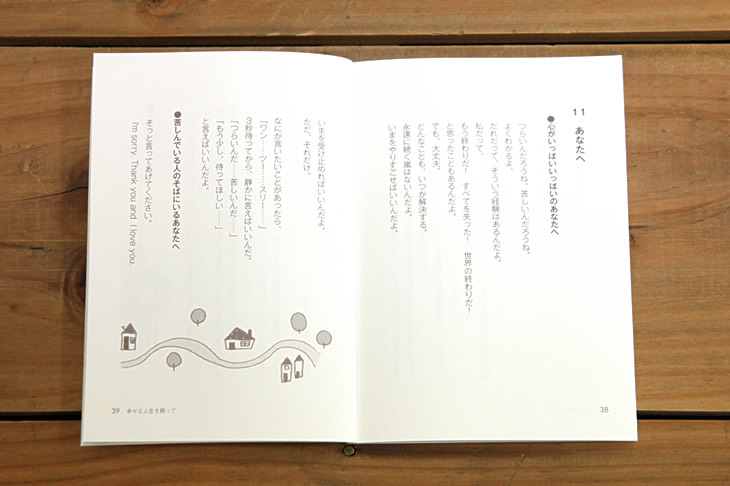 11 あなたへ
●心がいっぱいいっぱいのあなたへ
つらいんだろうね。苦しいんだろうね。
よくわかるよ。
だれだって、そういう経験はあるんだよ。
私だって、
もう終わりだ! すべてを失った! 世界の終わりだ!
と思ったこともあるんだよ。
でも、大丈夫。
どんなことも、いつか解決する。
永遠に続く嵐はないんだよ。
いまをやりすごせばいいんだよ。
38
いまを受け止めればいいんだよ、
ただ、それだけ。
なにか言いたいことがあったら、
「ワン……ツー……スリー……」
3秒待ってから、静かに言えばいいんだ。
「つらいんだ……苦しいんだ……」
「もう少し、待ってほしい……」
と言えばいいんだよ。
●苦しんでいる人のそばにいるあなたへ
そっと言ってあげてください。
I'm sorry. Thank you and I love you.
39 幸せな人生を願って